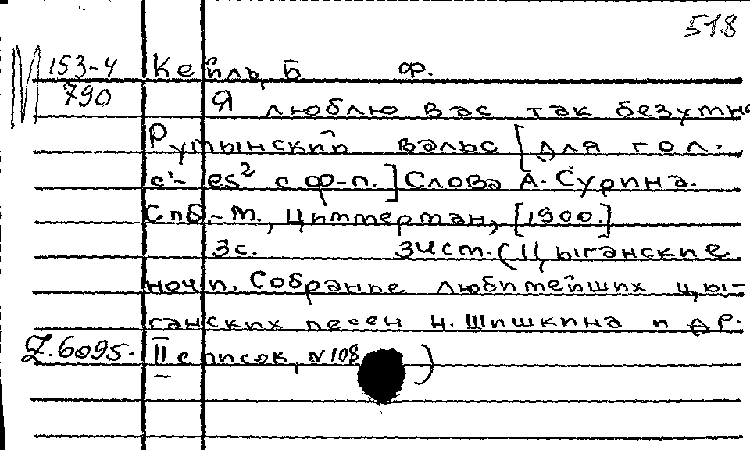 518
М 153-4 Кейль, Б Ф.
790 Я люблю вас так безумно
Румынский вальс [для гол.
c¹- es² с ф-п.] Слова А. Сурина.
Спб.-М., Циммерман, [1900.]
3с. 34см. (Цыганские
ночи. Собранье любимейших цы-
ганских песен Н. Шишкина и др.
Z.6095. II список, N 108 )